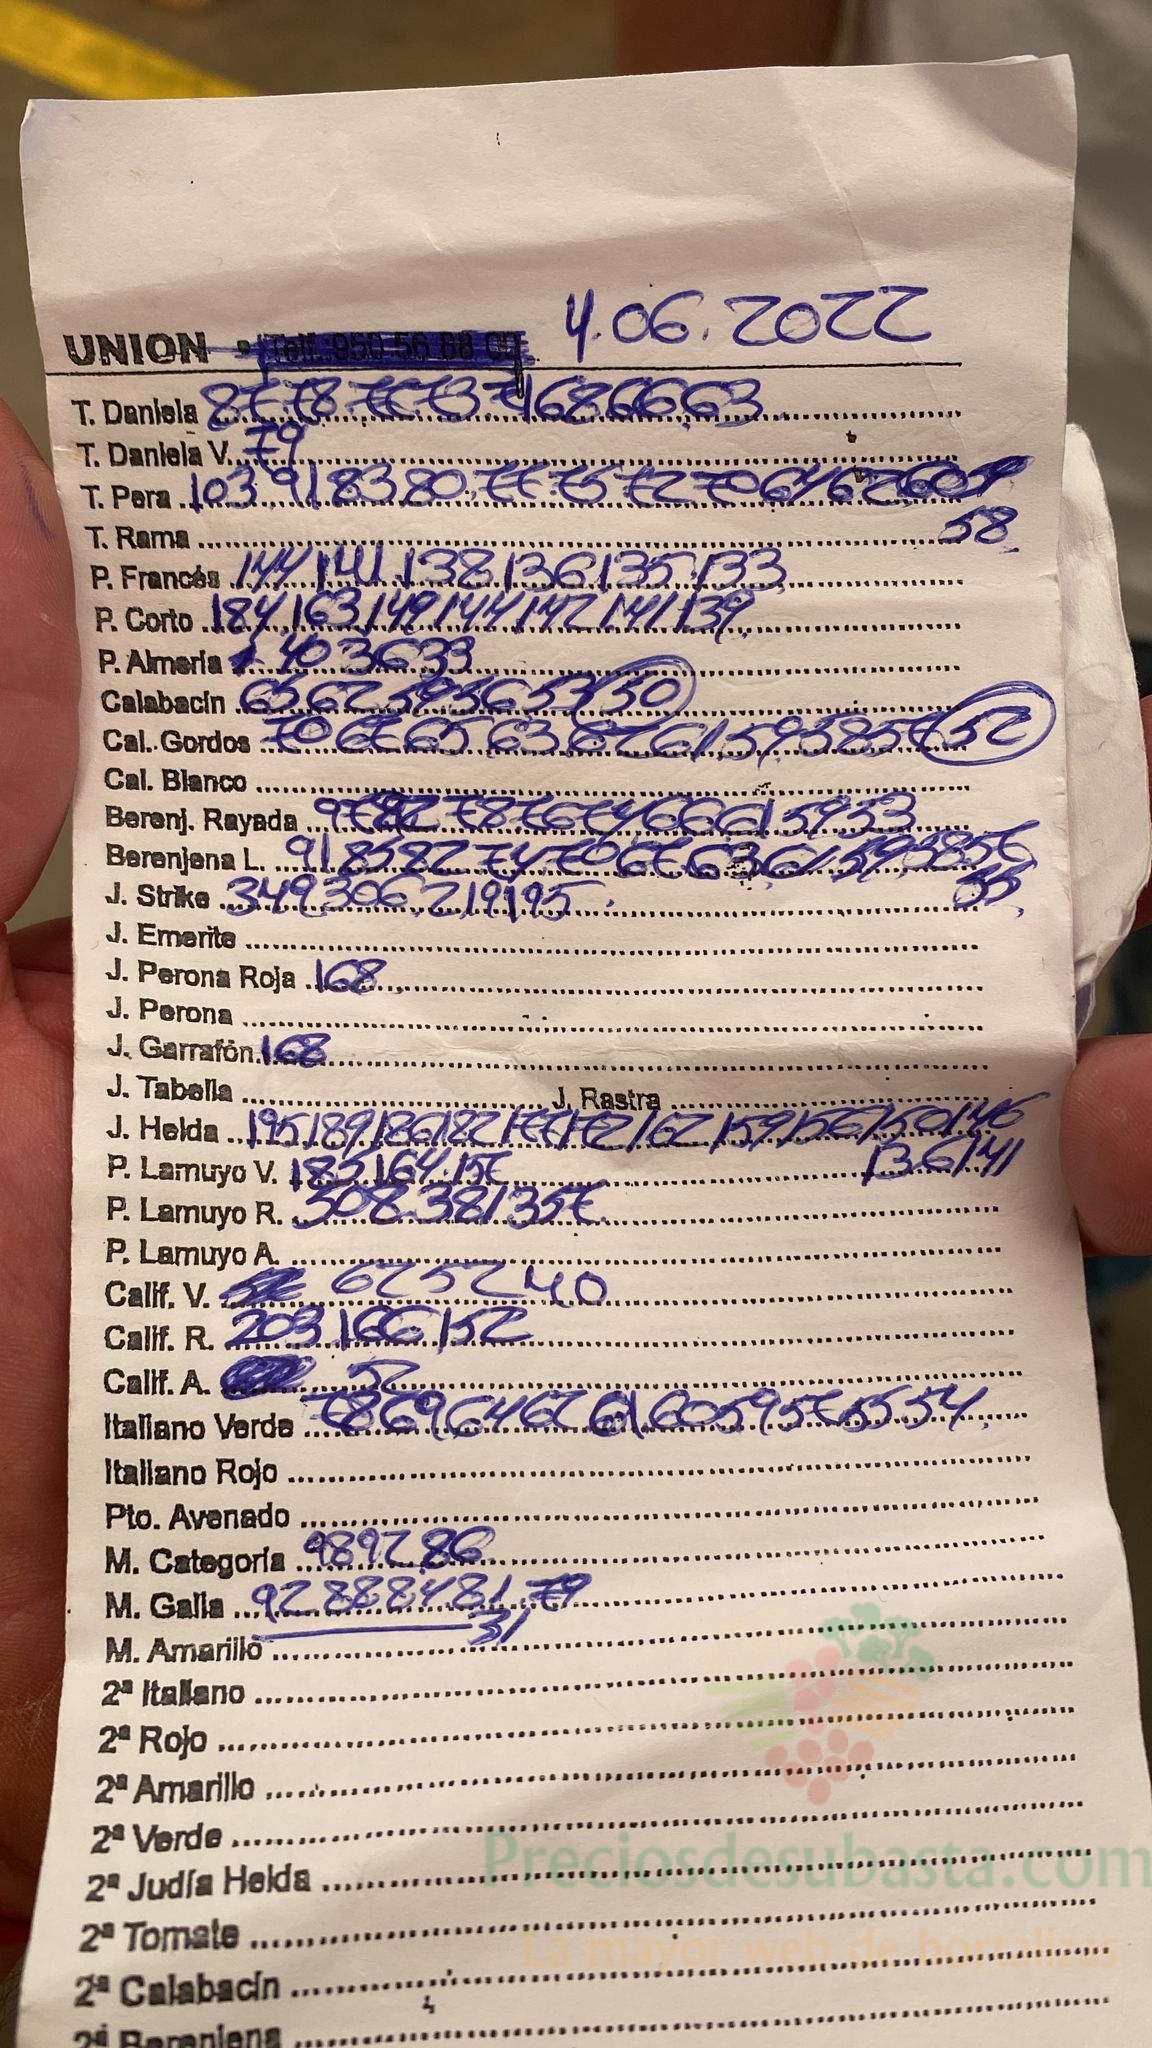 4.06.2022
UNION - Telf. 950 56 88 00
T. Daniela 87 78 77 73 74 68 66 63
T. Daniela V. 79
T. Pera 103 91 83 80 77 75 72 70 64 62 60 59
T. Rama 58
P. Francés 144 141 138 136 135 133
P. Corto 184 163 149 144 142 141 139
P. Almería 40 36 33
Calabacín 65 62 59 56 53 50
Cal. Gordos 70 67 65 63 62 61 59 58 57 52
Cal. Blanco
Berenj. Rayada 97 82 78 76 74 66 61 59 33
Berenjena L. 91 85 82 74 70 67 63 61 59 58 57
J. Strike 349 306 219 195 55
J. Emerite
J. Perona Roja 168
J. Perona
J. Garrafón 168
J. Tabella J. Rastra
J. Helda 195 189 186 182 177 172 162 159 156 150 146
P. Lamuyo V. 185 164 157 136 141
P. Lamuyo R. 508 381 357
P. Lamuyo A.
Calif. V. 62 52 40
Calif. R. 203 166 152
Calif. A. 52
Italiano Verde 78 69 64 62 61 60 59 57 55 54
Italiano Rojo
Pto. Avenado
M. Categoría 98 92 86
M. Galia 92 88 84 81 79
31
M. Amarillo
2ª Italiano
2ª Rojo
2ª Amarillo
2ª Verde
Preciosdesubasta.com
2ª Judía Helda
2ª Tomate
La mayor web de hortalizas
2ª Calabacín
2ª Berenjena